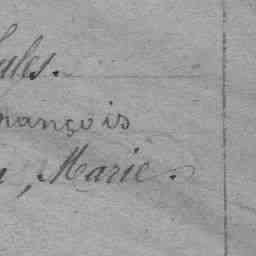 ules.
rançois
, Marie.